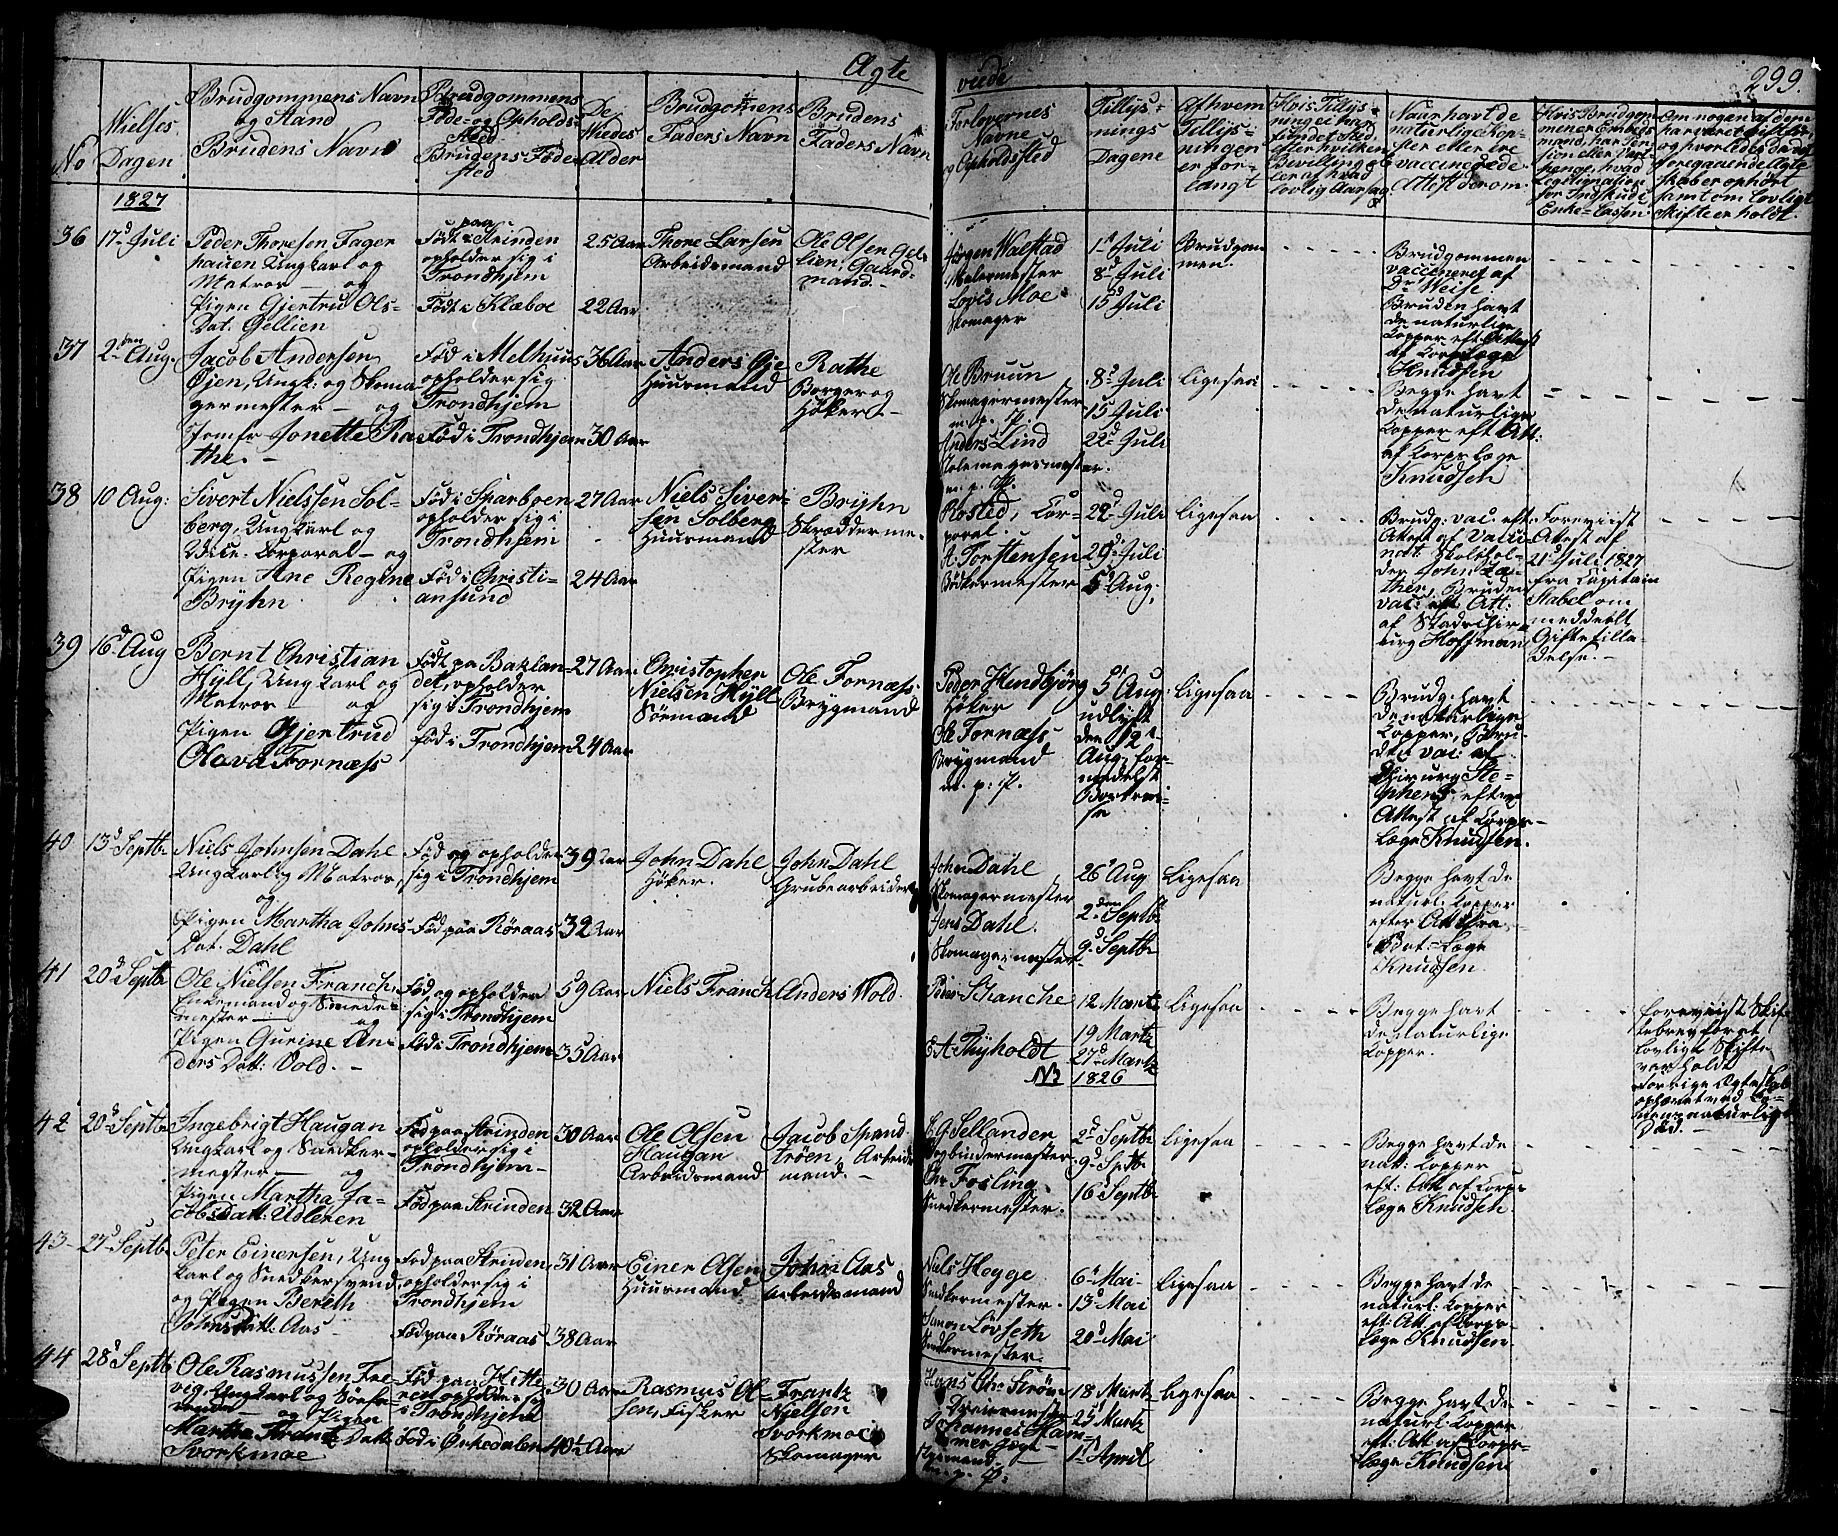 Ægte viede
299.
No
Vielses Dagen
Brudgommens Navn og Stand
Brudens Navn
Brudgommens Føde- og Opholds-Sted
Brudens Føde-sted
De Viedes Alder
Brudgomens Faders Navn
Brudens Faders Navn
Forlovernes Navne og Opholdsted
Tillys-nings Dagene
Af hvem Tillys-ningen er for-langt
Hvis Tillys-ning ei har fundet Sted, efter hvilken Bevilling el-ler af hvad lovlig Aarsag
Naar havt de naturlige Kop-per eller ere vaccinerede Attest derom.
1827
36
17d Juli
Peder Thoresen Fager
hauen Ungkarl og
Matros — og
Pigen Gjertrud Ols-
Dat. Gellien
Født paa Strinden
opholder sig i
Trondhjem
Født i Klæboe
25 Aar
22 Aar
Thore Larsen
Arbeidsmand
Ole Olsen Gel-
lien, Gaard-
mand.
Jørgen Walstad
Malermester
Lovis Moe
Skomager
1d Juli
8d Juli
15d Juli
Brudgom-
men.
Brudgommen
vaccineret af
Dr Weise.
Bruden havt
de naturlige
Kopper eft Attest
af Corpslæge
Knudsen
37
2den Aug.
Jacob Andersen
Øjen, Ungk: og Skoma
germester — og
Jomfr Jonette Ra
the. —
Fød i Melhuus
opholder sig
Trondhjem
Fød i Trondhjem
36 Aar
30 Aar
Anders Øje
Huusmand
Rathe
Borger og
Høker —
Ole Bruun
Skomagermester
m. p. P.
Anders Lind
Stolemagermester.
m. p. P.
8d Juli
15 Juli
22d Juli
Ligesaa
Begge havt
de naturlige
Kopper eft Att:
af Corps Læge
Knudsen
38
10 Aug:
Sivert Nielssen Sol-
berg, Ungkarl og
Vice-Corporal — og
Pigen Ane Regine
Bryhn
Fød i Sparboen
opholder sig i
Trondhjem
Fød i Christi-
ansund
27 Aar
24 Aar
Niels Siver-
sen Solberg
Huusmand
Bryhn
Skrædderme-
ster
Rosted, Cor-
poral.
A. Torstensen
Bødkermester
22d Juli
29d Juli
5d Aug.
Ligesaa
Brudg: vac: eft
Attest af Vacci-
nat. Skolehol-
der John
Bruden
vac: eft Att:
af Stadschir-
urg Hoffman
Foreviist
Attest af
21d Juli 1827
fra Capitain
Stabel om
meddeelt
Giftetilla-
delse. —
39
16d Aug
Bernt Christian
Hyll, Ungkarl og
Matros — og
Pigen Gjertrud
Olava Fornæss
Født paa Baklan-
det, opholder
sig i Trondhjem
Fød i Trondhjem
27 Aar
24 Aar
Christopher
Nielsen Hyll
Sørmand
Ole Fornæss
Brygmand
Peder Hindbjørg
Høker
Ole Fornæss
Brygmand
m. p. P.
5d Aug
udlyst
den 12d
Aug. for-
medelst
Bortrei-
se
Ligesaa
Brudg: havt
de naturlige
Kopper, Bru-
den vac: af
Chirurg Ste-
phens, efter
Attest af Corps-
læge Knudsen.
40
13d Septb
Niels Johnsen Dahl
Ungkarl og Matros,
og
Pigen Martha Johns
Dat. Dahl
Fød og opholder
sig i Trondhjem
Fød paa Røraas
39 Aar
32 Aar
John Dahl
Høker.
John Dahl
Grubearbeider
John Dahl
Skomagermester
Jens Dahl.
Skomagermester
26d Aug
2den Septb
9d Septb
Ligesaa
Begge havt de
naturl: Kopper
efter Att fra
Bat-Læge
Knudsen.
41
20d Septb
Ole Nielsen Franch
Enkemand og Smede-
mester — og
Pigen Gurine An-
ders Datt: Vold. —
Fød og opholder
sig i Trondhjem
Fød i Trondhjem
59 Aar
35 Aar
Niels Franch
Anders Wold.
Peter Schanche
E A Thyholdt
NB
12 Martz
19 Martz
27d Martz
1826
Ligesaa
Begge havt
de naturlige
Kopper.
Foreviist Skif-
tebrev for at
lovligt Skifte
var holdt
forrige Ægteskab
ophævet ved Ko-
nens naturlige
Død. —
42
20d Septb
Ingebrigt Haugan
Ungkarl og Snedker-
mester — og
Pigen Martha Ja-
cobs Datt: Udleren
Fød paa Strinden
opholder sig i
Trondhjem
Fød paa Strinden
30 Aar
32 Aar
Ole Olsen
Haugan
Arbeidsmand
Jacob Spand-
trøen, Arbeids
mand. —
E. G. Sellander
Bogbindermester
Chr Fosling
Snedkermester.
2d Septb
9d Septb
16d Septb
Ligesaa
Begge havt de
nat: Kopper
eft: Att af Corps
læge Knudsen.
43
27d Septb
Peter Einersen, Ung
karl og Snedkersvend
og Pigen Bereth
Johns Datt: Aas
Fød paa Strinden
opholder sig i
Trondhjem
Fød paa Røraas
31 Aar
38 Aar
Einer Olsen
Huusmand
John Aas
Arbeidsmand
Niels Hogge
Snedkermester.
Simon Løvseth
Snedkermester.
6d Mai
13d Mai
20d Mai
Ligesaa
Begge havt de
naturl: Kopper
eft: Att af Corps-
læge Knudsen.
44
28d Septb
Ole Rasmussen Fre
vig, Ungkarl og Søefa-
rende og Pigen
Martha Frantz Datt
Svorkmoe
Fød paa Hitte-
ren opholder sig
i Trondhjem
Fød i Orkedalen
30 Aar
40½ Aar
Rasmus Ol-
sen, Fisker
Frantz
Nielsen
Svorkmoe
Skomager
Hans Chr Strøm
Dreiermester
Johannes Ham-
mer
m. p. P.
18d Martz
25d Martz
1d April
Ligesaa
Begge havt de
naturl: Kopper
eft: Att af Corps-
læge Knudsen